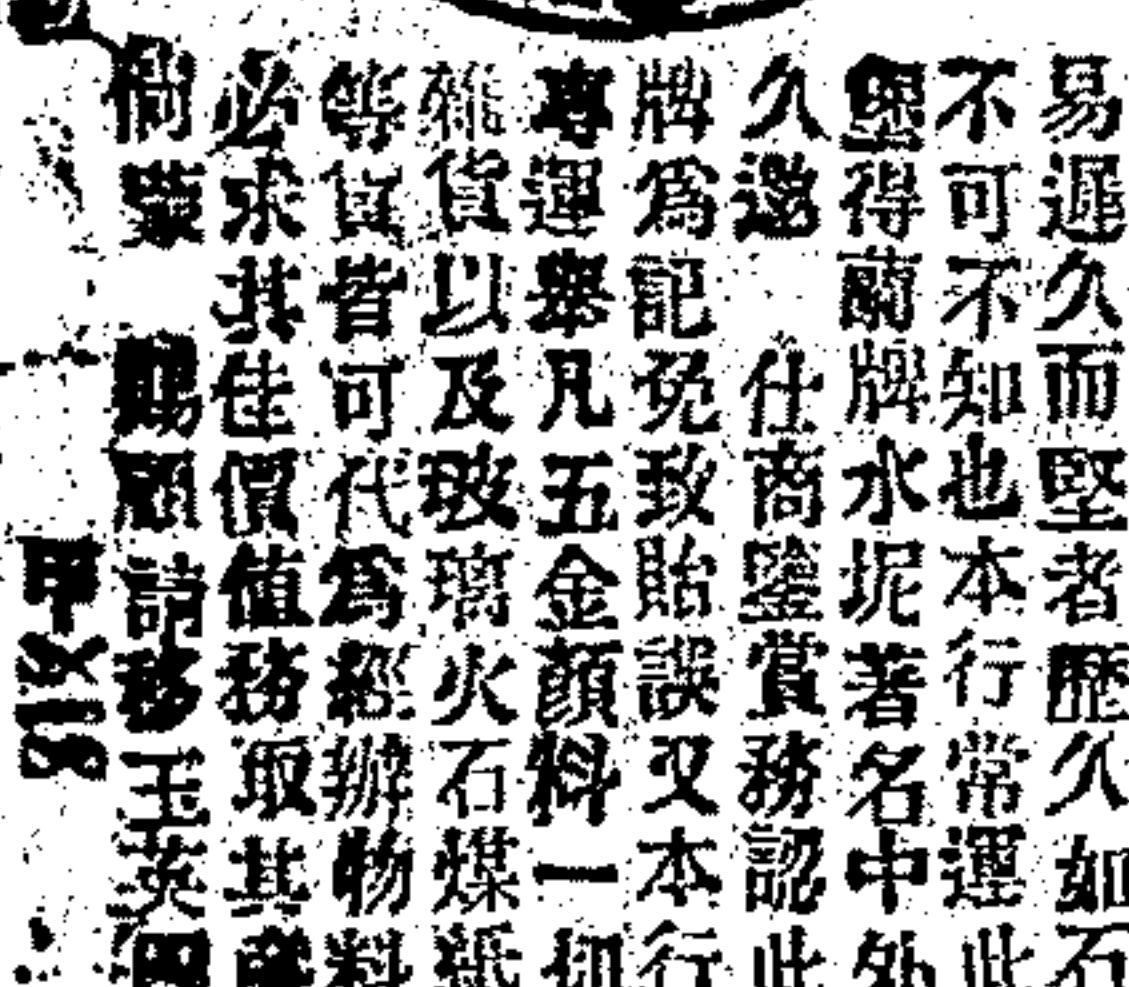 易遲久而堅者歷久如石
不可不知也本行常運此
堡得蘭牌水坭著名中外
久邀 仕商鑒賞務認此
牌爲記免致貽誤又本行
專運舉凡五金顏料一切
雜貨以及玻璃火石煤紙
等貨皆可代爲經辦物料
必求其佳價值務取其
倘蒙 賜顧請移玉英
甲 X 918